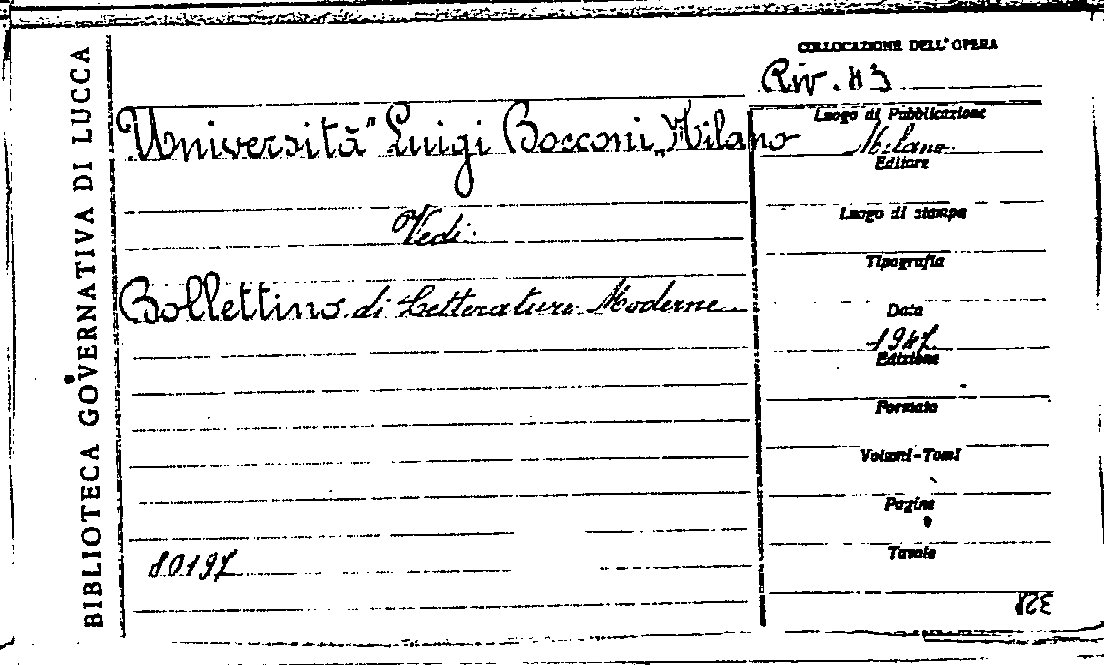 BIBLIOTECA GOVERNATIVA DI LUCCA
COLLOCAZIONE DELL'OPERA
Riv. 83
Università "Luigi Bocconi" Milano
Vedi:
Bollettino di Letterature Moderne
80197
Luogo di Pubblicazione
Milano
Editore
Luogo di stampa
Tipografia
Data
1947
Edizione
Formato
Volumi-Tomi
Pagine
Tavole